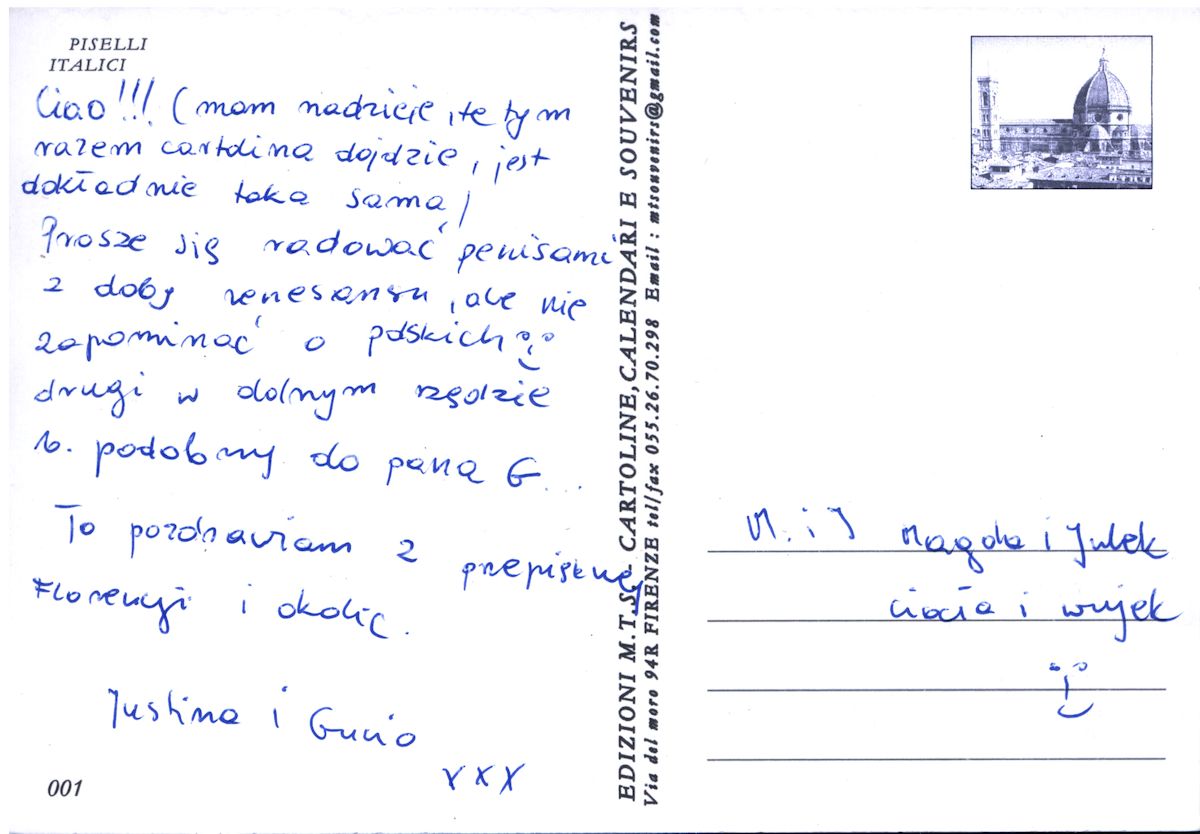 PISELLI
ITALICI
Ciao!!! (mam nadzieję, że tym
razem cartolina dojdzie, jest
dokładnie taka sama)
Proszę się radować penisami
z doby renesansu, ale nie
zapominać o polskich
drugi w dolnym rzędzie
b. podobny do pana G...
To pozdrawiam z przepięknej
Florencji i okolic.
Justina i Gucio
xxx
001
EDIZIONI M.T.S. - CARTOLINE, CALENDARI E SOUVENIRS
Via del moro 94R FIRENZE tel/fax 055.26.70.298 Email : mtsouvenirs@gmail.com
M. i J Magda i Julek
ciocia i wujek